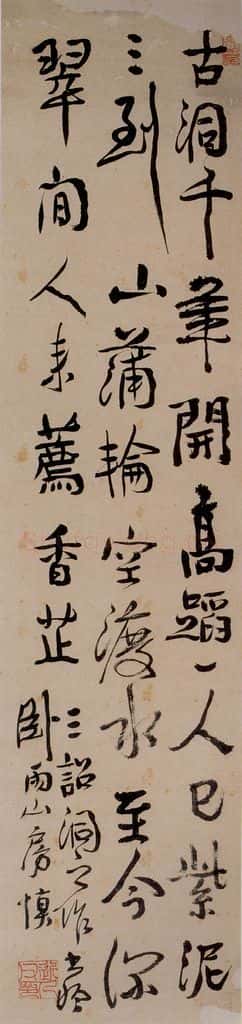 古洞千年開高蹈一人已紫泥
三到山蒲輪空渡水至今深
翠間人來薦香芷
三詔洞之作書
卧雨山房慎